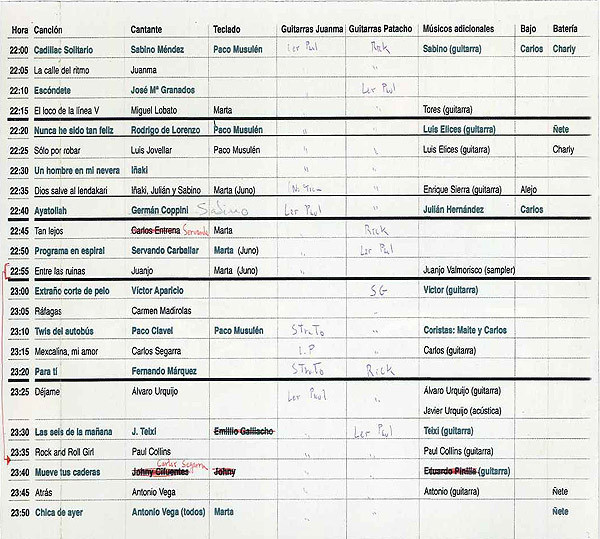 Hora Canción Cantante Teclado Guitarras Juanma Guitarras Patacho Músicos adicionales Bajo Batería
22:00 Cadillac Solitario Sabino Méndez Paco Musulén Ler Paul Rick Sabino (guitarra) Carlos Charly
22:05 La calle del ritmo Juanma "
22:10 Escóndete José Mª Granados Ler Paul
22:15 El loco de la línea V Miguel Lobato Marta " Tores (guitarra)
22:20 Nunca he sido tan feliz Rodrigo de Lorenzo Paco Musulén " " Luis Elices (guitarra) Ñete
22:25 Sólo por robar Luis Jovellar Paco Musulén " " Luis Elices (guitarra) Charly
22:30 Un hombre en mi nevera Iñaki " "
22:35 Dios salve al lendakari Iñaki, Julián y Sabino Marta (Juno) " Enrique Sierra (guitarra) Alejo
22:40 Ayatollah Germán Coppini Sabino Ler Paul " Julián Hernández Carlos
22:45 Tan lejos Carlos Entrena Servando Marta Rick
22:50 Programa en espiral Servando Carballar Marta (Juno) Ler Paul
22:55 Entre las ruinas Juanjo Marta (Juno) " Juanjo Valmorisco (sampler)
23:00 Extraño corte de pelo Víctor Aparicio SG Víctor (guitarra)
23:05 Ráfagas Carmen Madirolas "
23:10 Twis del autobús Paco Clavel Paco Musulén STraTo " Coristas: Maite y Carlos
23:15 Mexcalina, mi amor Carlos Segarra L.P " Carlos (guitarra)
23:20 Para tí Fernando Márquez STraTo Rick
23:25 Déjame Álvaro Urquijo Ler Paul " Álvaro Urquijo (guitarra)
" Javier Urquijo (acústica)
23:30 Las seis de la mañana J. Teixi Emilio Galiacho " Ler Paul Teixi (guitarra)
23:35 Rock and Roll Girl Paul Collins " " Paul Collins (guitarra)
Carlos Segarra
23:40 Mueve tus caderas Johny Cifuentes Johny " " Eduardo Pinilla (guitarra)
23:45 Atrás Antonio Vega " " Antonio (guitarra) Ñete
23:50 Chica de ayer Antonio Vega (todos) Marta " " Ñete